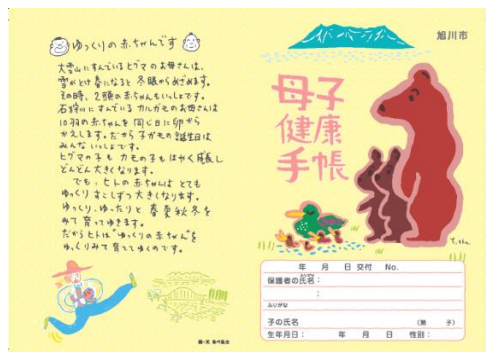 ゆっくりの赤ちゃんです
大雪山にすんでいるヒグマのお母さんは、
雪がとけ春になると冬眠からめざめます。
その時、2頭の赤ちゃんもいっしょです。
石狩川にすんでいるカルガモのお母さんは
10羽の赤ちゃんを同じ日に卵から
かえします。だから子がもの誕生日は
みんないっしょです。
ヒグマの子も カモの子もはやく成長し
どんどん大きくなります。
でも、ヒトの赤ちゃんは とても
ゆっくり すこしずつ大きくなります。
ゆっくり、ゆったりと 春夏秋冬を
みて育ってゆきます。
だからヒトは"ゆっくりの赤ちゃん"を
ゆっくりみて育ててゆくのです。
絵・文 あべ弘士
旭川市
母子
健康
手帳
年 月 日交付 No.
保護者の氏名:
:
ふりがな
子の氏名 (第 子)
生年月日: 年 月 日 性別: